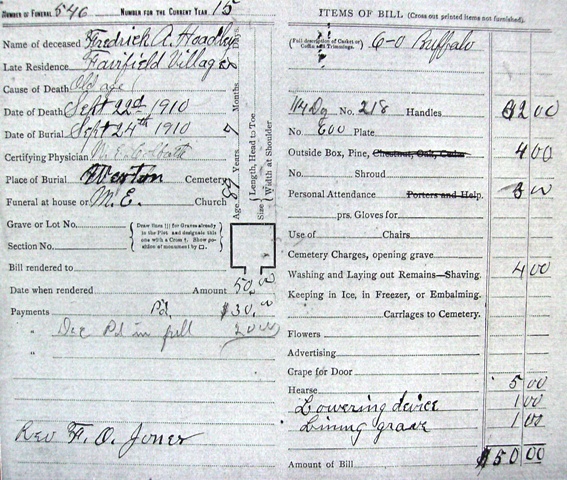 NUMBER OF FUNERAL 546 NUMBER FOR THE CURRENT YEAR 15
Name of deceased Fredrick A. Hoadley
Late Residence Fairfield Village
Cause of Death Old age
Date of Death Sept 22d 1910
Date of Burial Sept 24th 1910
Certifying Physician
Place of Burial Weston Cemetery
Funeral at house or M.E. Church
Grave or Lot No.
Section No.
Draw lines ||| for Graves already in the Plot and designate this one with a Cross †. Show position of monument by □.
Bill rendered to
Date when rendered Amount 50.00
Payments Pd. $30.00
" Dec Pd in full 20 00
"
Rev F. O. Jones
Age Years 7 Months
Size { Length, Head to Toe
Width at Shoulder
ITEMS OF BILL (Cross out printed items not furnished.)
(Full description of Casket or Coffin and Trimmings.) 6-0 Buffalo
1/4 Doz No. 218 Handles 32 00
No. 600 Plate
Outside Box, Pine, Chestnut, Oak, Cedar 4 00
No. Shroud
Personal Attendance Porters and Help. 3 00
prs. Gloves for
Use of Chairs
Cemetery Charges, opening grave
Washing and Laying out Remains—Shaving. 4 00
Keeping in Ice, in Freezer, or Embalming.
Carriages to Cemetery.
Flowers
Advertising
Crape for Door
Hearse 5 00
Lowering device 1 00
Lining grave 1 00
Amount of Bill $50 00